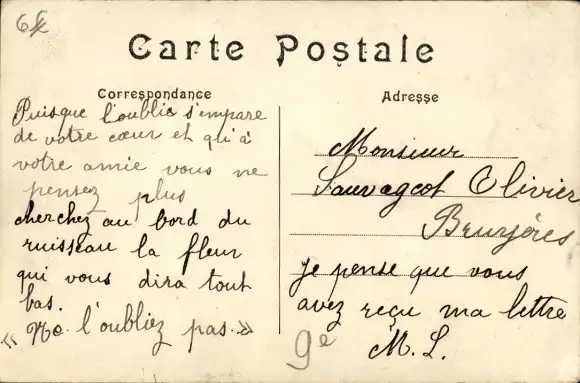 Carte Postale
Correspondance
Puisque l'oublie s'empare
de votre cœur et qu'à
votre amie vous ne
pensez plus
cherchez au bord du
ruisseau la fleur
qui vous dira tout
bas.
« Ne l'oubliez pas. »
Adresse
Monsieur
Sauvageot Olivier
Bruyères
je pense que vous
avez reçu ma lettre
M. L.
9e